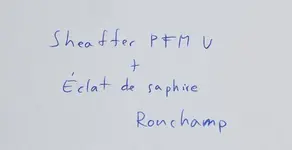 Sheaffer PFM V
+
Éclat de saphire
Ronchamp